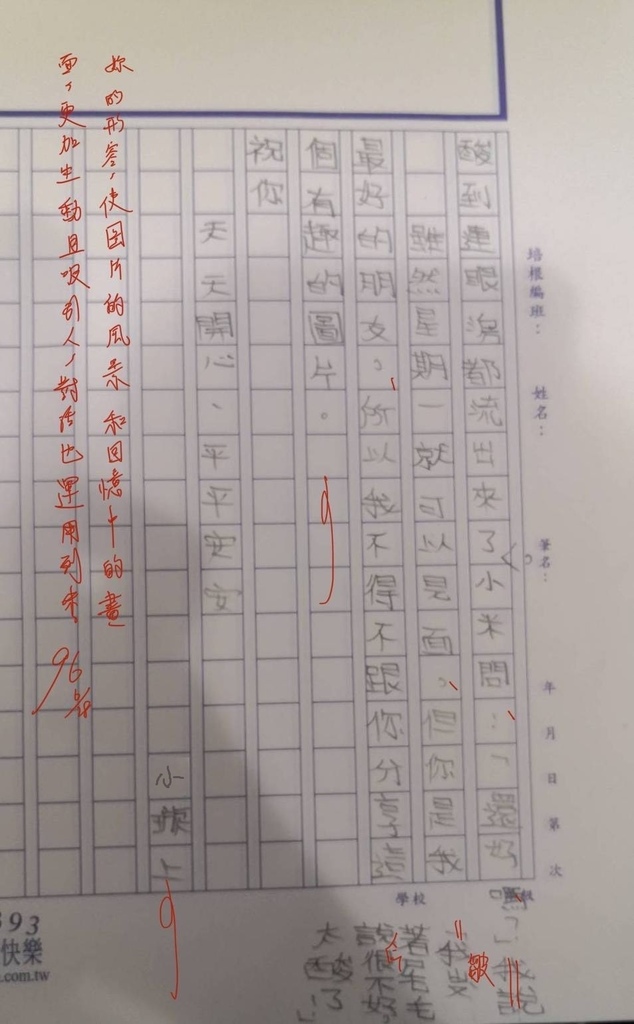 培根編班：
姓名：
筆名：
年
月
日
第
次
酸到連眼淚都流出來了。小米問：「還好
嗎？」我說
「我皺
著眉毛
說很不好，
太酸了！」
學校
雖然星期一就可以見面，但你是我
最好的朋友，所以我不得不跟你分享這
個有趣的圖片。
祝你
天天開心、平平安安
小
上
妳的形容，使圖片的風景和回憶中的畫
面，更加生動且吸引人，對話也運用到來。
96
393
快樂
.com.tw